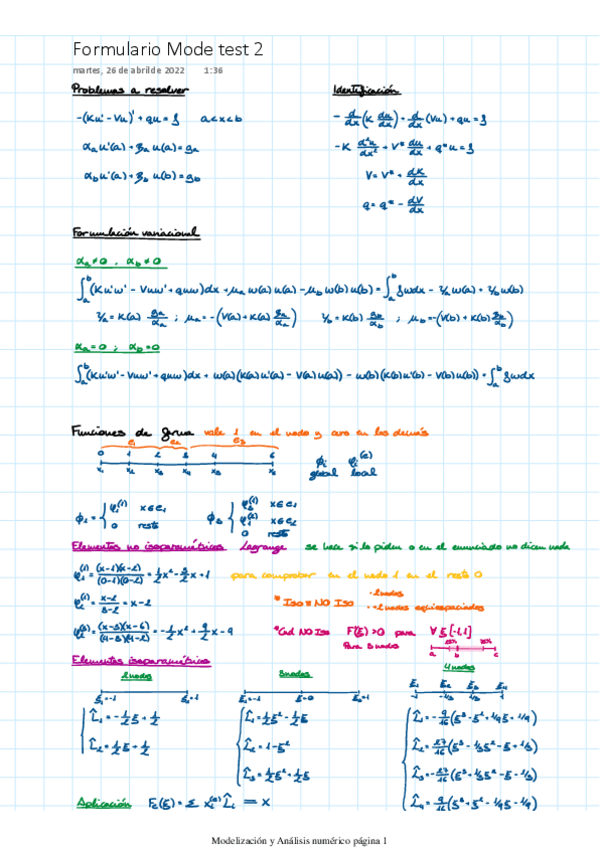 Formulario Mode test 2
martes, 26 de abril de 2022 1:36
Problemas a resolver
-(Ku' - Vu)' + qu = f a<x<b
αa u'(a) + βa u(a) = ga
αb u'(a) + βb u(b) = gb
Identificación
- d/dx (K du/dx) + d/dx (Vu) + qu = f
-K d²u/dx² + V* du/dx + q*u = f
V = V* + dK/dx
q = q* - dV/dx
Formulación variacional
αa ≠ 0 , αb ≠ 0
∫ₐᵇ (Ku'w' - Vuw' + quw)dx + μa w(a) u(a) - μb w(b) u(b) = ∫ₐᵇ fwdx - γa w(a) + γb w(b)
αa = 0 ; αb = 0
∫ₐᵇ (Ku'w' - Vuw' + quw)dx + w(a)(K(a)u'(a) - V(a)u(a)) - w(b)(K(b)u'(b) - V(b)u(b)) = ∫ₐᵇ fwdx
Funciones de forma vale 1 en el nodo y cero en los demás
e1 e2 e3
0 1 2 3 4 6
x1 x2 x3 x4 x5 x6
φi φi(e)
global local
x∈e1
0 resto
x∈e1
x∈e2
0 resto
Elementos no isoparamétricos Lagrange se hace si lo piden o en el enunciado no dicen nada
(x-1)(x-2) / (0-1)(0-2) = 1/2 x² - 3/2 x + 1 para comprobar en el nodo 1 en el resto 0
= x-2 / 3-2 = x-2
* ISO = NO ISO
· 2 nodos
· +2 nodos equiespaciados
(x-3)(x-6) / (4-3)(4-6) = -1/2 x² + 9/2 x - 9
*Cond NO ISO F'(ξ) > 0 para ∀ ξ[-1,1]
Para 3 nodos
25% 25%
a b c
Elementos isoparamétricos
2 nodos
3 nodos
4 nodos
ξ1=-1 ξ2=1
ξ1=-1 ξ2=0 ξ3=1
ξ1 ξ2 ξ3 ξ4
-1 -1/3 1/3 1
L̂1 = -1/2 ξ + 1/2
L̂2 = 1/2 ξ + 1/2
L̂1 = 1/2 ξ² - 1/2 ξ
L̂2 = 1 - ξ²
L̂3 = 1/2 ξ² + 1/2 ξ
L̂1 = -9/16 (ξ³ - ξ² - 1/9 ξ + 1/9)
L̂2 = 27/16 (ξ³ - 1/3 ξ² - ξ + 1/3)
L̂3 = -27/16 (ξ³ + 1/3 ξ² - ξ - 1/3)
L̂4 = 9/16 (ξ³ + ξ² - 1/9 ξ - 1/9)
Aplicación
Modelización y Análisis numérico página 1